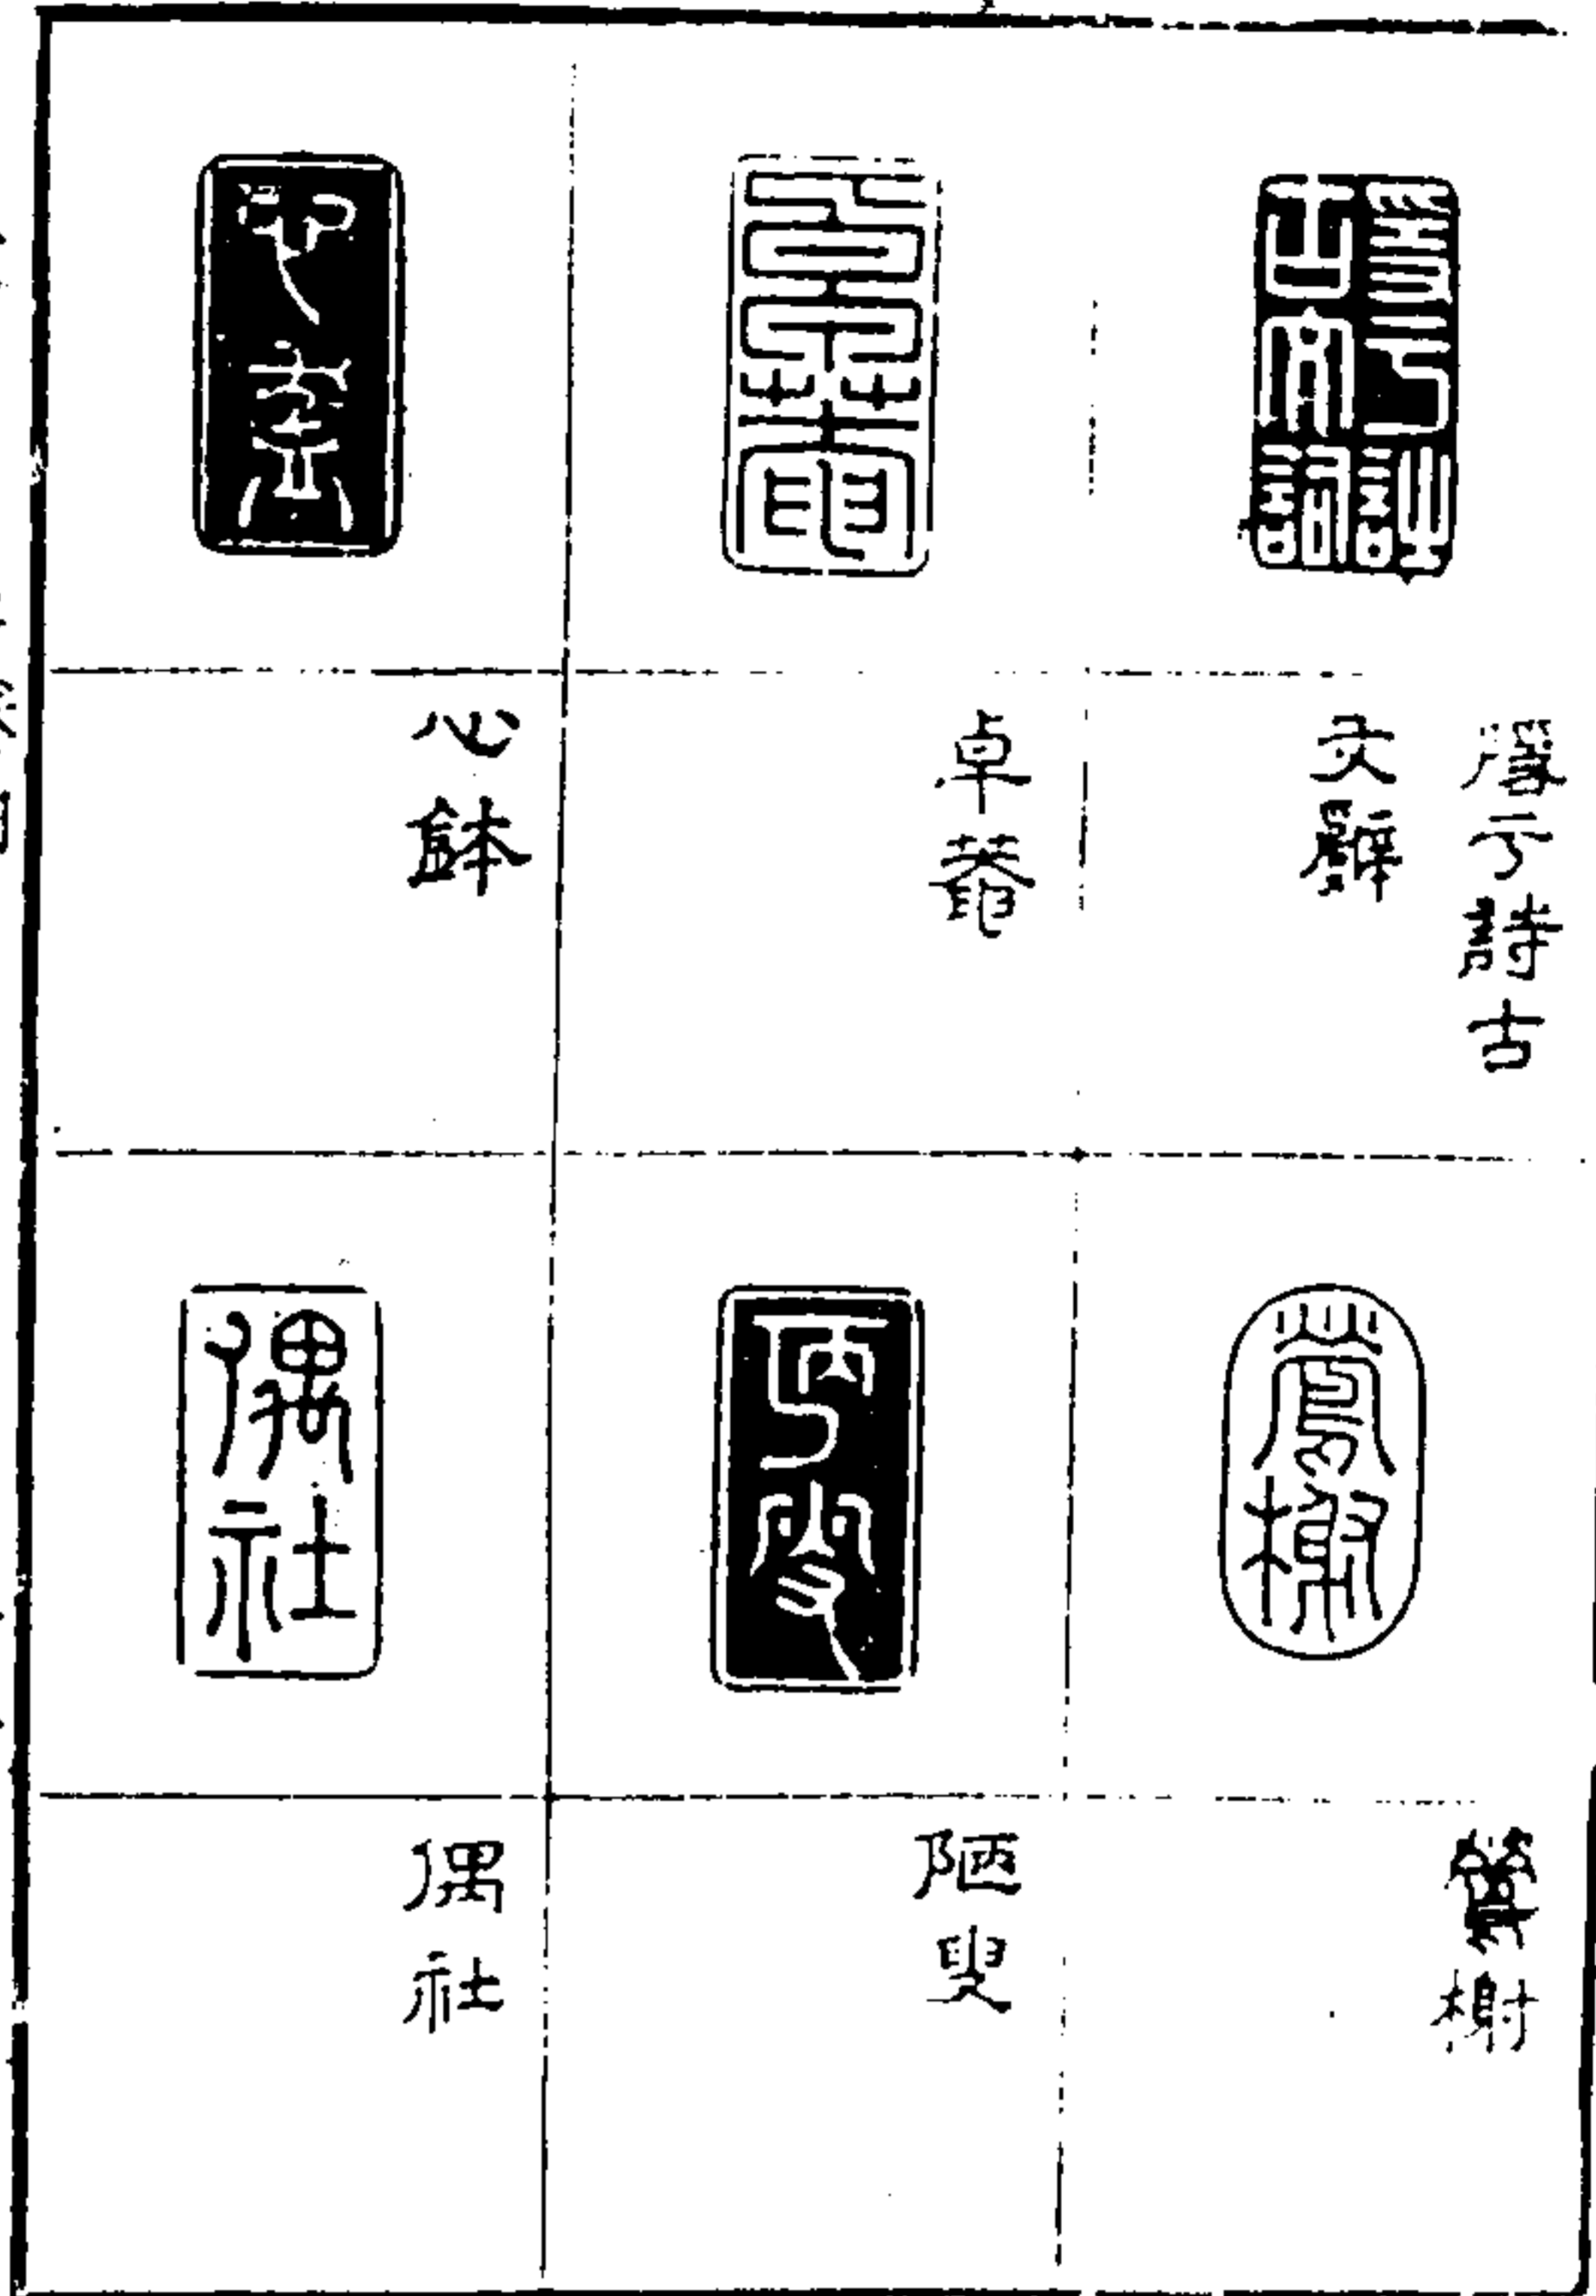 于詩古
文辭
卓菴
心鉢
榭
陋叟
偶社